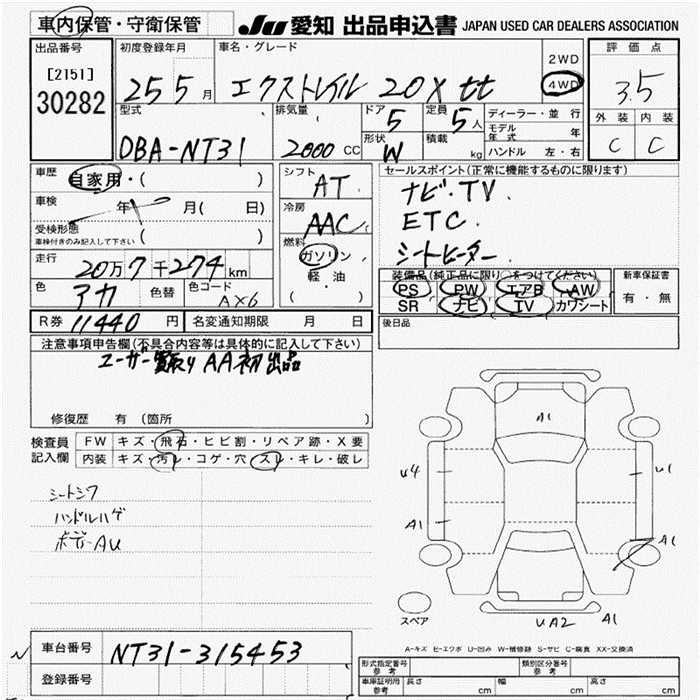 車内保管・守衛保管 JU 愛知 出品申込書 JAPAN USED CAR DEALERS ASSOCIATION
出品番号 初度登録年月 車名・グレード 2WD 評価点
[2151] 25 5 月 エクストレイル 20X tt 4WD 3.5
30282 型式 排気量 ドア 5 定員 5人 ディーラー・並行 外装 内装
DBA-NT31 2000 CC 形状 W 積載 kg モデル年式 年 C C
ハンドル 左・右
車歴 自家用・( ) シフト AT セールスポイント(正常に機能するものに限ります)
車検 年 月( 日) 冷房 AAC ナビ・TV.
受検形態 ( ) ETC.
車検付きのみ記入して下さい 燃料 ガソリン シートヒーター.
走行 20万7千274km 軽・油 装備品(純正品に限り○をつけてください) 新車保証書
色 アカ 色替 色コード AX6 ( ) PS PW エアB AW 有・無
SR ナビ TV カワシート
R券 11440 円 名変通知期限 月 日 後日品
注意事項申告欄(不具合内容等は具体的に記入して下さい)
ユーザー買取り AA初出品
修復歴 有 (箇所
検査員 FW キズ・飛石・ヒビ割・リペア跡・X要
記入欄 内装 キズ・汚レ・コゲ・穴・スレ・キレ・破レ
A1
U4 U1
シートシワ
ハンドルハゲ A1
ボデーAU A1
スペア UA2 A1
A-キズ E-エクボ U-凹み W-補修跡 S-サビ C-腐食 XX-交換済
車台番号 NT31-315453
登録番号
形式指定番号 参考 類別区分番号 参考
車庫証明用 参考 長さ cm 幅 cm 高さ cm